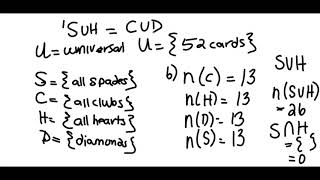 'SUH = CUD
U = universal U = {52 cards}
S = {all spades}
C = {all clubs}
H = {all hearts}
D = {diamonds}
b) n(C) = 13
n(H) = 13
n(D) = 13
n(S) = 13
SUH
n(SUH)
= 26
S∩H
= { }
= 0